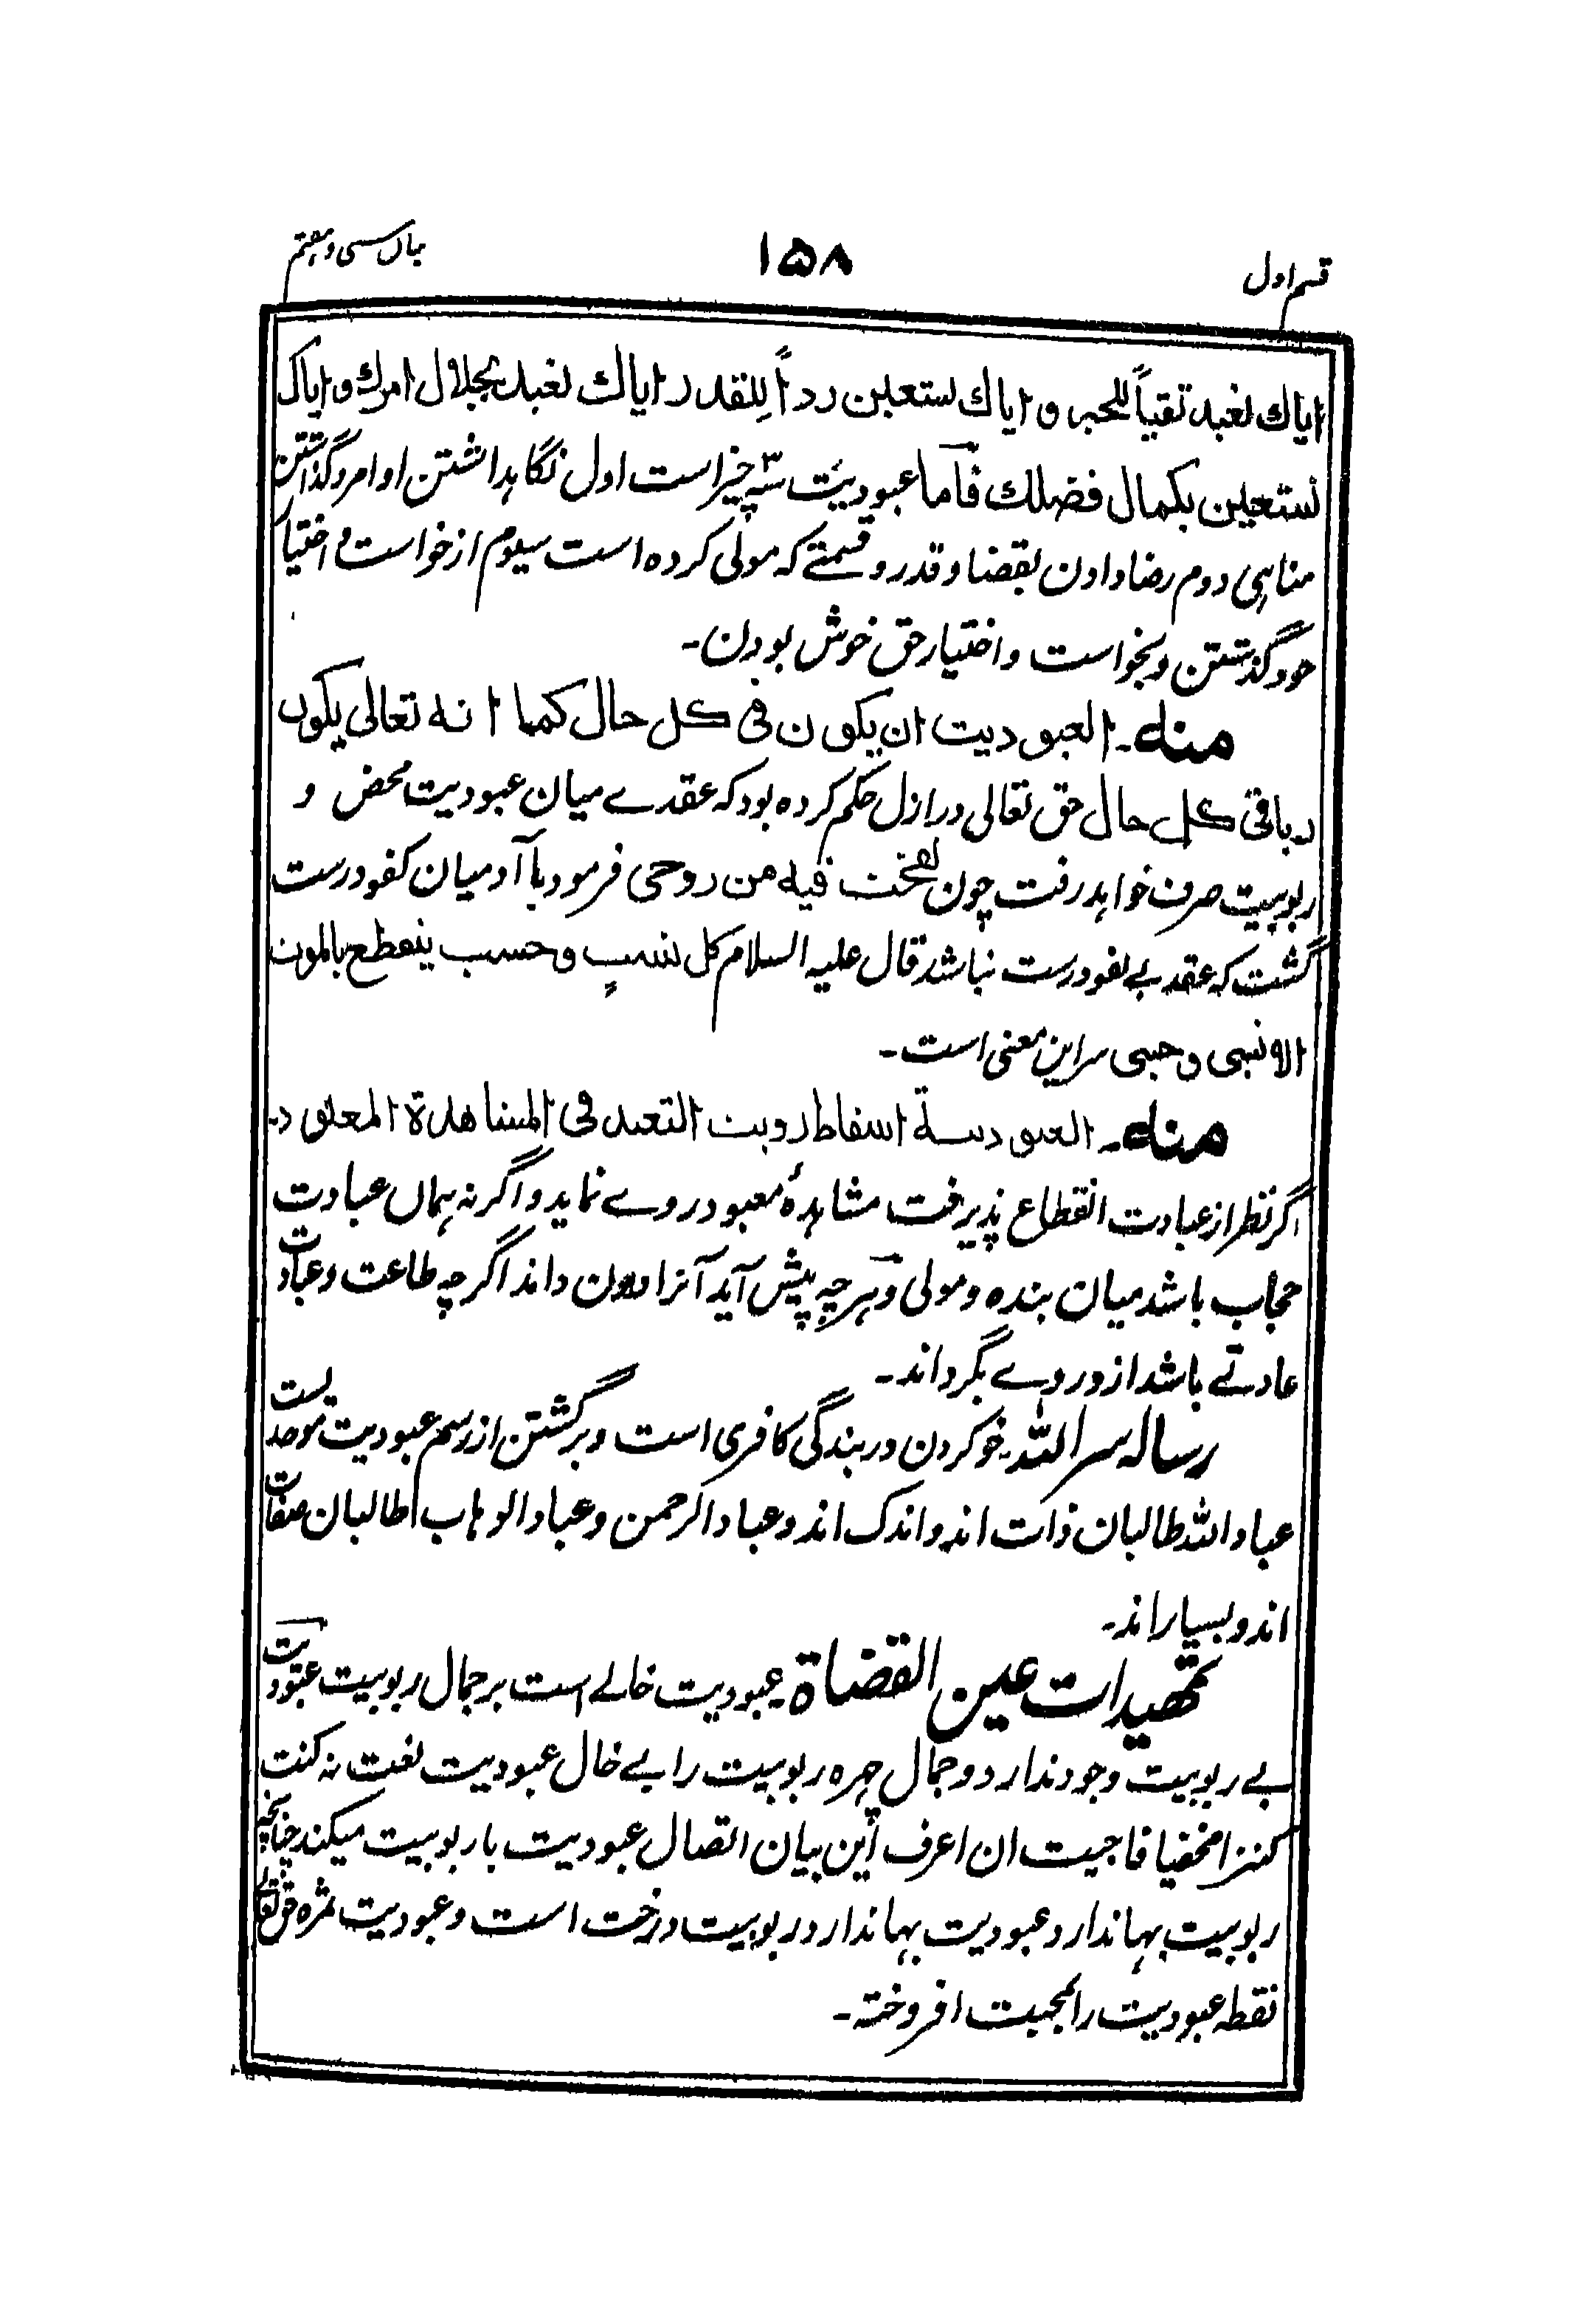 قسم اول
۱۵۸
بیان سی و هفتم
ایاك نعبد تقیاً للجبر و ایاك نستعین رداً للقدر ایاك نعبد بجلال امرك و ایاك
نستعین بکمال فضلك فآما عبودیت سه چیز است اول نگاہداشتن اوامر و گذاشتن
مناہی دوم رضا دادن بقضا و قدر و قسمتے که مولی کرده است سیوم از خواست و اختیار
خود گذشتن و بخواست و اختیار حق خوش بودن۔
منه۔ العبودیت ان یکون فی کل حال کما انه تعالی یکون
ربا فی کل حال حق تعالی در ازل حکم کرده بود که عقدے میان عبودیت محض و
ربوبیت صرف خواہد رفت چون نفخت فیه من روحی فرمود با آدمیان کفو درست
گشت که عقد بے کفو درست نباشد قال علیه السلام کل نسبٍ و حسب ینقطع بالموت
الا نسبی و حسبی سر این معنی است۔
منه۔ العبودیة اسقاط رویت التعبد فی المشاهدة المعبود۔
اگر نظر از عبادت انقطاع پذیرفت مشاہدۂ معبود روے نماید و اگر نہ ہماں عبادت
حجاب باشد میان بنده و مولی و ہرچہ پیش آید آنرا دون داند اگرچہ طاعت و عبادت
عادتے باشد از و روے بگرداند۔
رسالہ سر اللہ۔ خو کردن در بندگی کافری است و برگشتن از رسم عبودیت موحدیست
عباد اللہ طالبان ذات اند و اندک اند و عباد الرحمن و عباد الوہاب طالبان صفات
اند و بسیار اند۔
تمهیدات عین القضاة۔ عبودیت خالے است بر جمال ربوبیت عبودیت
بے ربوبیت وجود ندارد و جمال چہرہ ربوبیت را بے خال عبودیت نعت نہ کنت
کنزا مخفیا فاحببت ان اعرف این بیان اتصال عبودیت با ربوبیت میکند چنانچہ
ربوبیت بہا ندارد عبودیت بہا ندارد ربوبیت درخت است و عبودیت ثمرہ حق تعالی
نقطہ عبودیت را بمحبت افروختہ۔